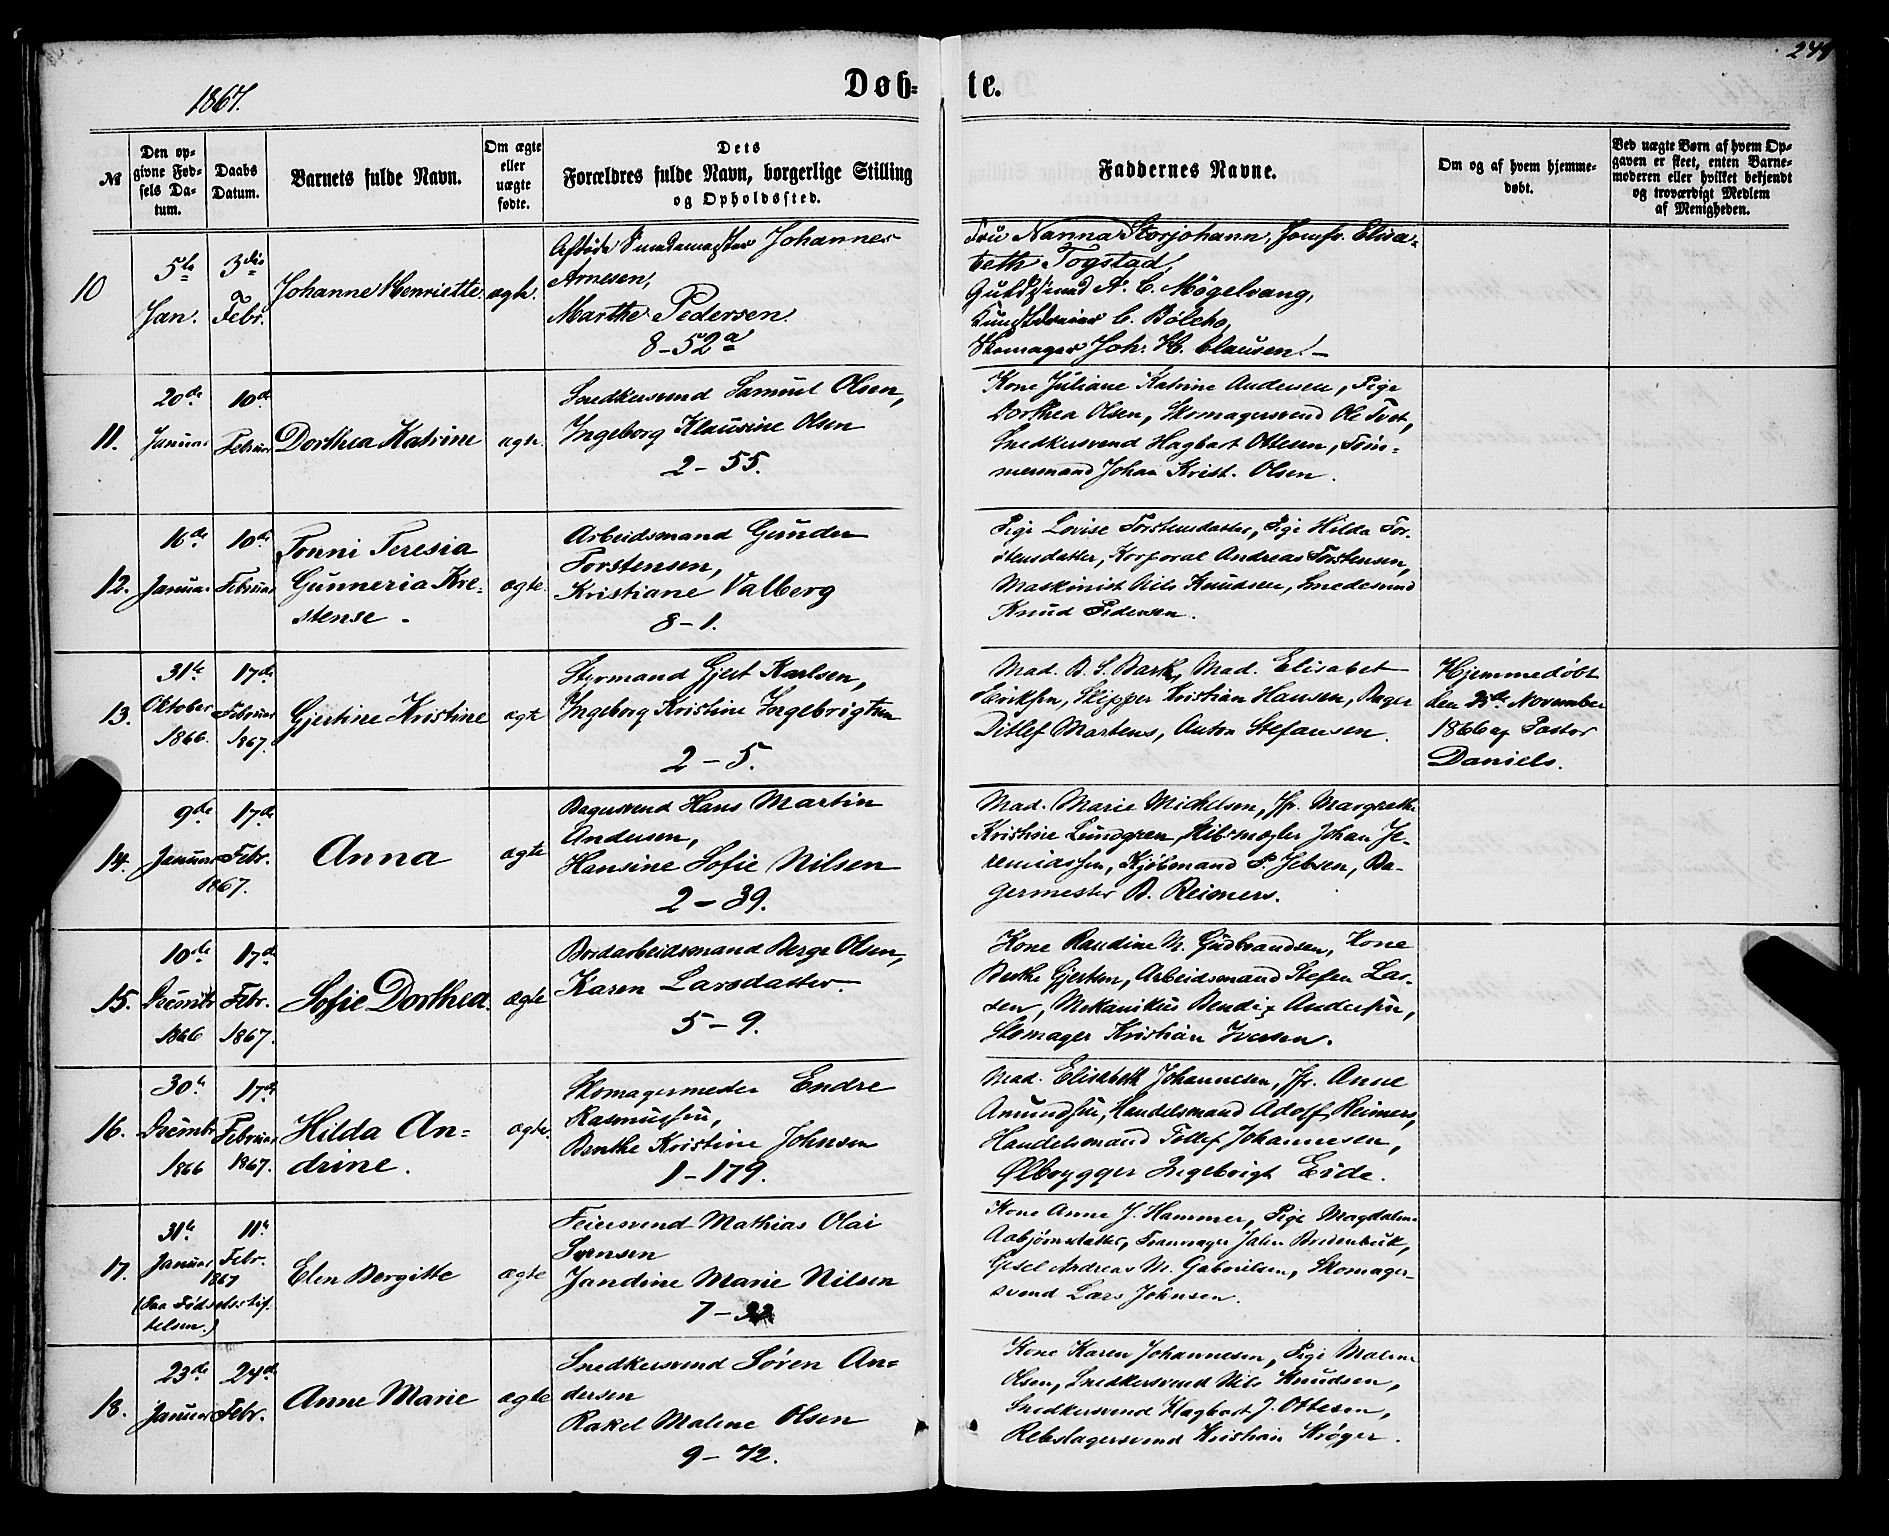 244
1867.
Døb-te.
№
Den op-
givne Fød-
sels Da-
tum.
Daabs
Datum.
Barnets fulde Navn.
Om ægte
eller
uægte
fødte.
Dets
Forældres fulde Navn, borgerlige Stilling
og Opholdssted.
Faddernes Navne.
Om og af hvem hjemme-
døbt.
Ved uægte Børn af hvem Op-
gaven er skeet, enten Barne-
moderen eller hvilket bekjendt
og troværdigt Medlem
af Menigheden.
10
5te
Jan.
3die
Febr.
Johanne Henriette.
ægte.
Johannes
Arnesen,
Marthe Pedersen.
8-52a
Fru Nanna Storjohann, Jomfr. Elisa-
beth Togstad,
Guldsmed A. C. Møgelvang,
C. Bølcho,
Skomager Joh: H. Clausen! -
11.
20de
Januar
10de
Februar
Dorthea Katrine
ægte.
Snedkersvend Samuel Olsen,
Ingeborg Klausine Olsen
2-55.
Kone Juliane Katrine Andersen, Pige
Dorthea Olsen, Skomagersvend Ole Tvet,
Snedkersvend Hagbart Ottesen, Tøm-
mermand Johan Krist. Olsen.
12.
16de
Januar
10de
Februar
Tonni Teresia
Gunneria Kre-
stense -
ægte.
Arbeidsmand Gunder
Torstensen,
Kristiane Valberg
8-1.
Pige Lovise Torstensdatter, Pige Hilda Tor-
stensdatter, Korporal Andreas Torstensen,
Maskinist Nils Knudsen, Smedesvend
Knud Pedersen.
13.
31te
Oktober
1866.
17de
Februar
1867.
Gjertine Kristine
ægte
Styrmand Gjert Karlsen,
Ingeborg Kristine Ingebrigtsen
2-5.
Mad. B. S. Bark, Mad. Elisabet
Eriksen, Skipper Kristian Hansen, Bager
Ditlef Martens, Anton Stefansen.
Hjemmedøbt
den November
1866 af Pastor
Daniels.
14.
9de
Januar
17de
Febr.
1867.
Anna
ægte
Bagersvend Hans Martin
Andersen,
Hansine Sofie Nilsen
2-39.
Mad. Marie Michelsen, Jfr. Margrethe
Kristine Lundgren, Skibsmægler Johan Je-
remiassen, Kjøbmand P. Jebsen, Ba-
germester B. Reimers.
15.
10de
Decembr
1866
17de
Febr.
1867.
Sofie Dorthea.
ægte
Bordarbeidsmand Berge Olsen,
Karen Larsdatter.
5-9.
Kone Randine M. Gudbrandsen, Kone
Berthe Gjertsen, Arbeidsmand Stefen Lar-
sen, Mekanikus Bendix Andersen,
Skomager Kristian Iversen.
16.
30te
Decembr
1866
17de
Februar
1867.
Hilda An-
drine.
ægte.
Skomagermester Endre
Rasmussen,
Benthe Kristine Johnsen
1-179.
Mad. Elisabeth Johannesen, Jfr. Anne
Amundsen, Handelsmand Adolf Reimers,
Handelsmand Tollef Johannesen,
Ølbrygger Ingebrigt Eide.
17.
31te
Januar
11te
Febr.
1867
(Paa Fødselsstif-
telsen.)
Elen Bergitte
ægte
Feiersvend Mathias Olai
Sørensen
Jandine Marie Nilsen
7-
Kone Anne J. Hammer, Pige Magdalene
Asbjørnsdatter, Bredenbech,
Gesel Andreas M. Gabrielsen, Skomager-
svend Lars Johnsen.
18.
23de
Januar
24de
Febr.
Anne Marie
ægte
Snedkersvend Søren An-
dersen
Rakel Malene Olsen
9-72.
Kone Karen Johannesen, Pige Malene
Olsen, Snedkersvend Nils Knudsen,
Snedkersvend Hagbart J. Ottesen,
Rebslagersvend Kristian Krøger.